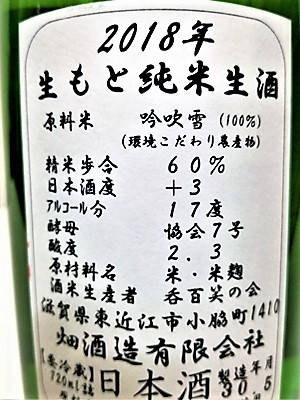 2018年
生もと純米生酒
原料米 吟吹雪(100%)
(環境こだわり農産物)
精米歩合 60%
日本酒度 +3
アルコール分 17度
酵母 協会7号
酸度 2.3
原材料名 米・米麹
酒米生産者 呑百笑の会
滋賀県東近江市小脇町1410
畑酒造有限会社
【要冷蔵】 日本酒 製造年月
720ml詰 30.5